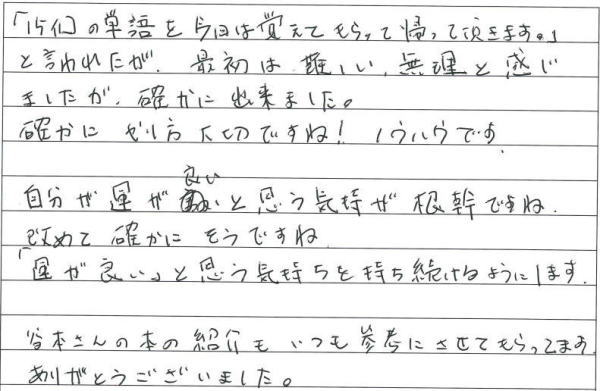 「15個の単語を今日は覚えてもらって帰って頂きます。」
と言われたが、最初は難しい、無理と感じ
ましたが、確かに出来ました。
確かにやり方大切ですね! ノウハウです
自分が運が良いと思う気持が根幹ですね
改めて確かにそうですね
「運が良い」と思う気持ちを持ち続けるようにします。
谷本さんの本の紹介もいつも参考にさせてもらってます。
ありがとうございました。